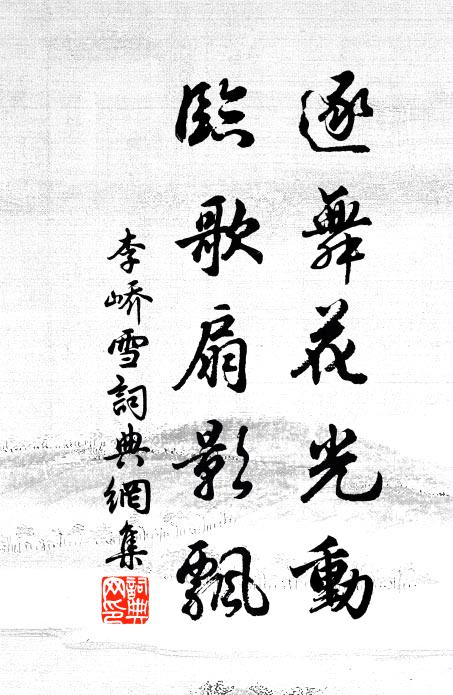 逐舞花光動
臨歌扇影飄
李嶠雪詞典網集
詞典
网印